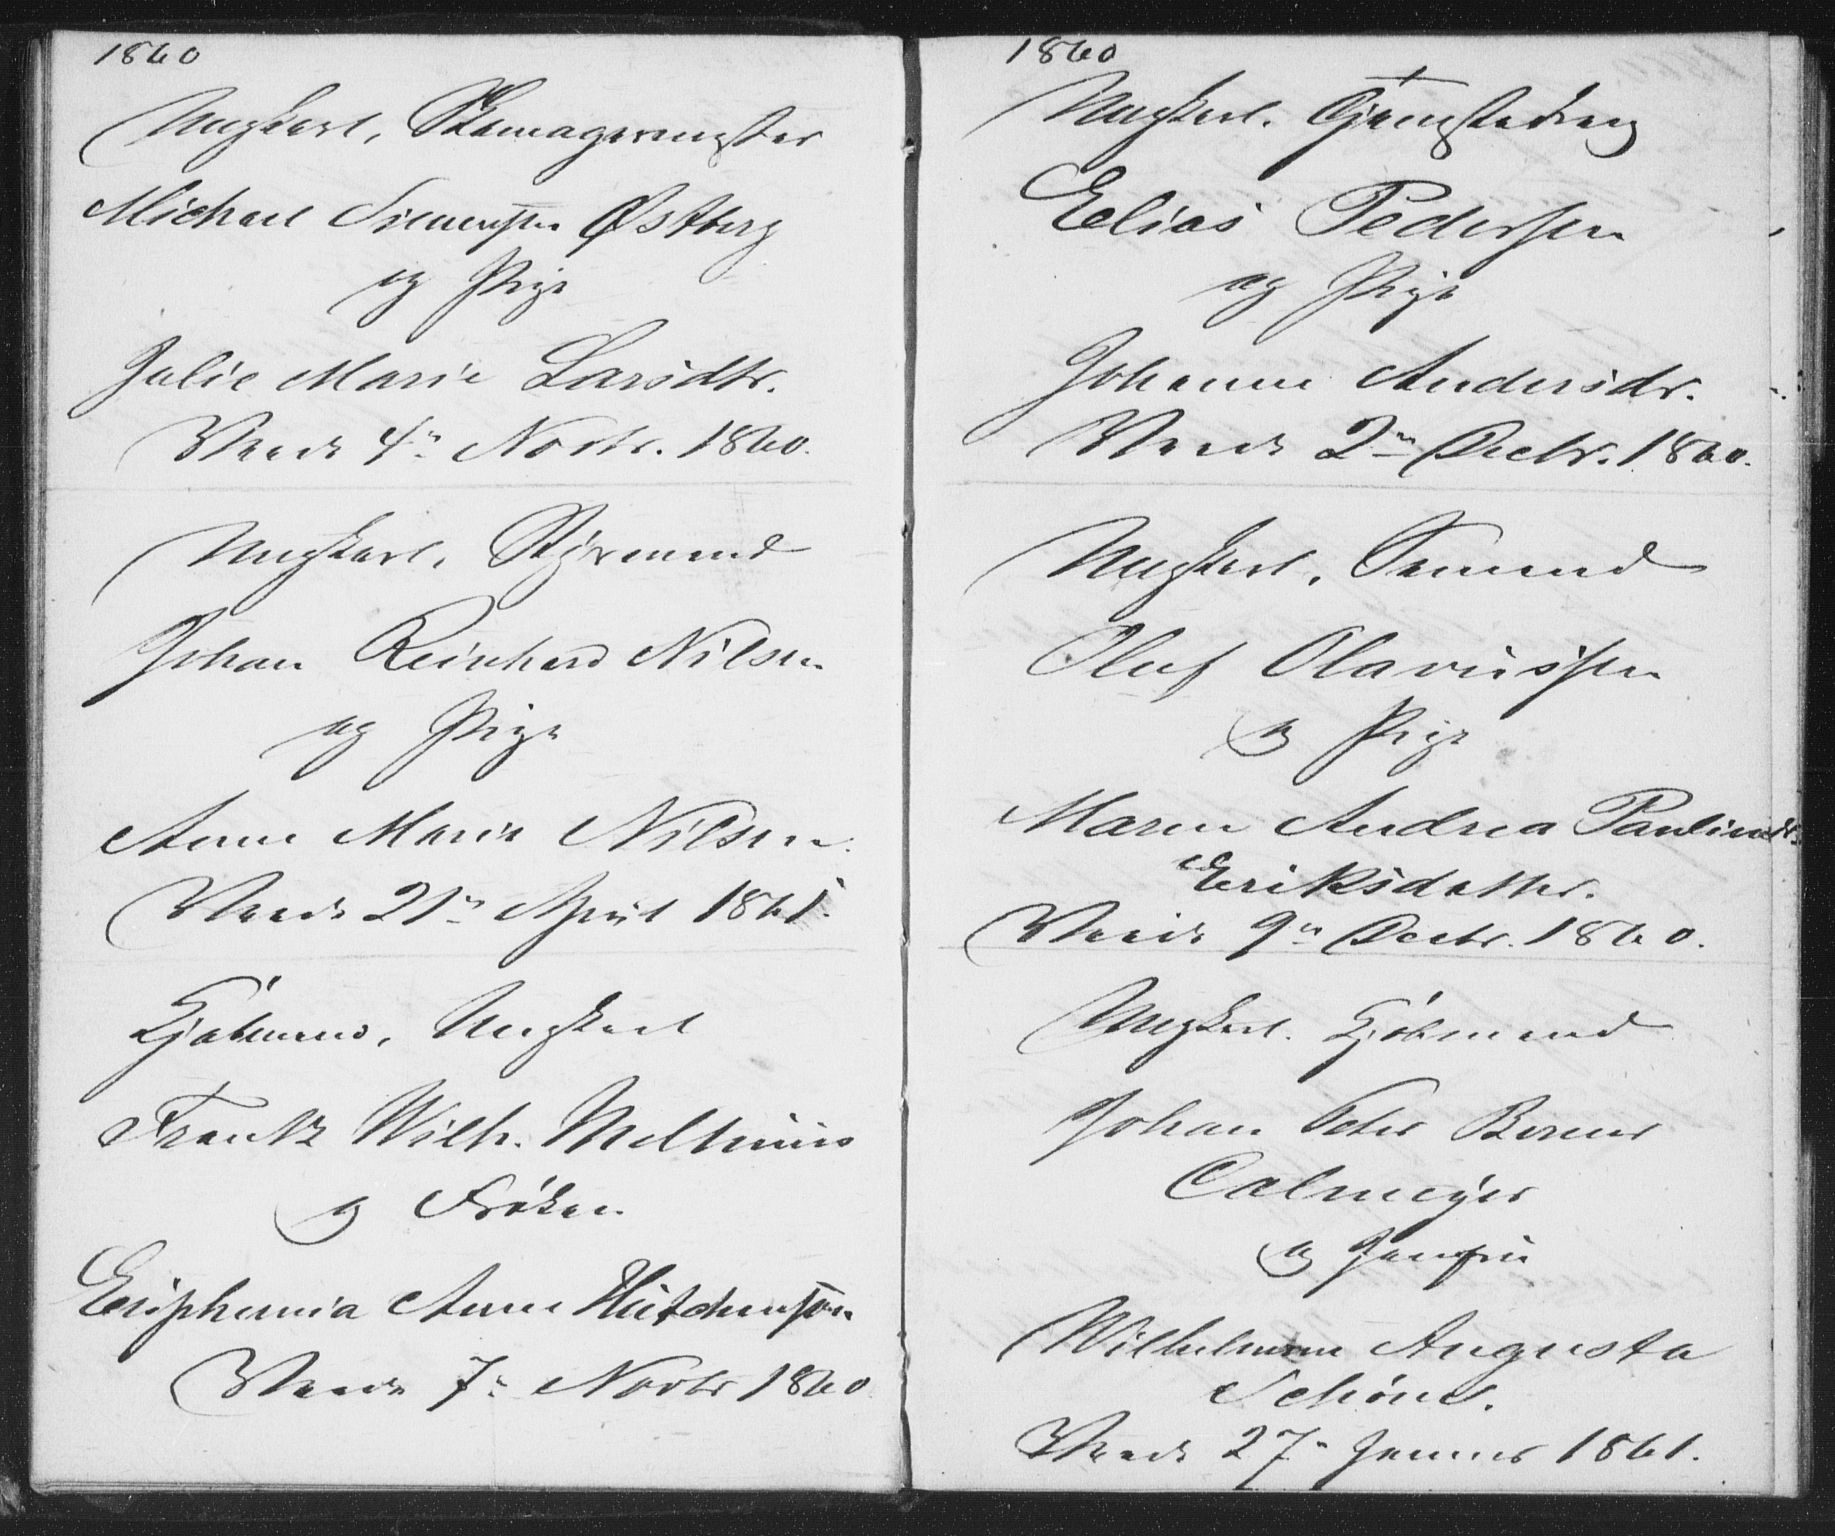 1860
Ungkarl, Skomagermester
Michael Simensen Østberg
og Pige
Julie Marie Larsdtr.
Viede 4de Novbr. 1860.
Ungkarl, Styrmand
Johan Reinhard Nilsen
og Pige
Anne Marie Nilsen.
Viede 21de April 1861.
Kjøbmand, Ungkarl
Frantz Wilh. Melthinius
og Frøken
Euphemia Anne Hutchenson
Viede 7de Novbr 1860
1860
Ungkarl. Tjenestedreng
Elias Pedersen
og Pige
Johanne Andersdr.
Viede 2den Decbr. 1860.
Ungkarl, Sømand
Oluf Olaviussen
og Pige
Maren Andrea Paulined
Eriksdatter.
Viede 9de Decbr. 1860.
Ungkarl. Kjøbmand
Johan Peter Berner
Calmeyer
og Jomfru
Wilhelmine Augusta
Schøne.
Viede 27de Januar 1861.